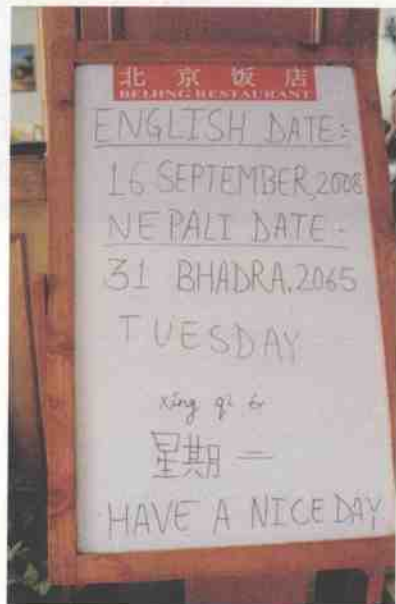 北京饭店
BEIJING RESTAURANT
ENGLISH DATE:-
16 SEPTEMBER, 2008
NEPALI DATE -
31 BHADRA, 2065
TUESDAY
xīng qī èr
星期二
HAVE A NICE DAY